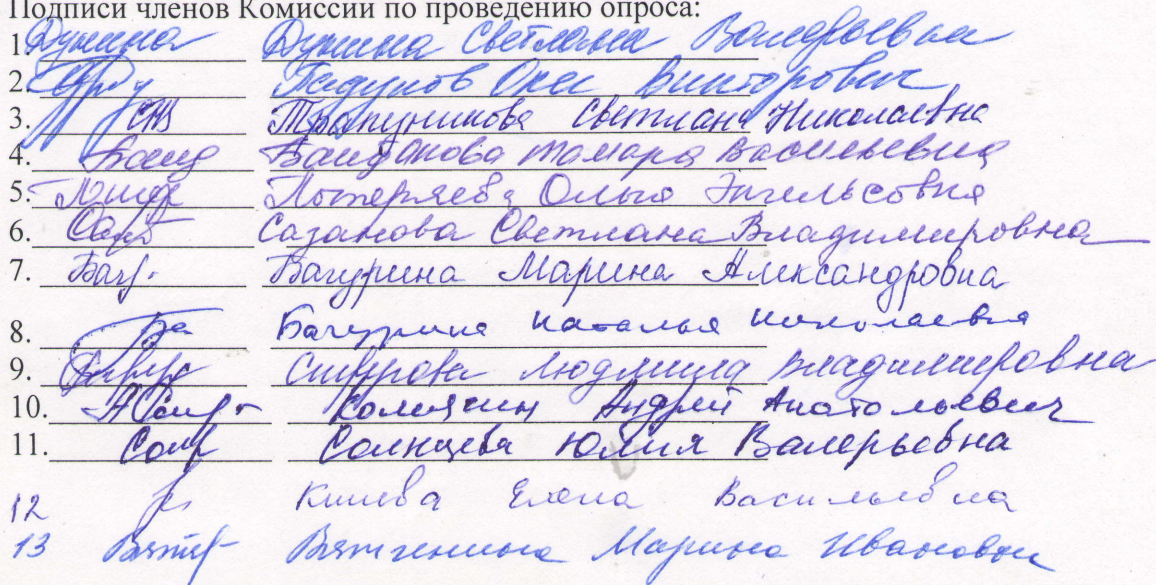 Подписи членов Комиссии по проведению опроса:
1. Дунина Дунина Светлана Валерьевна
2. Гадунов Олег Викторович
3. Трапезникова Светлана Николаевна
4. Баид Тамара Васильевна
5. Потеряева Ольга Энгельсовна
6. Сазанова Светлана Владимировна
7. Бачур. Бачурина Марина Александровна
8. Ба Бачурина Наталья Николаевна
9. Людмила Владимировна
10. Андрей Анатольевич
11. Солнцева Юлия Валерьевна
12 Елена Васильевна
13 Марина Ивановна